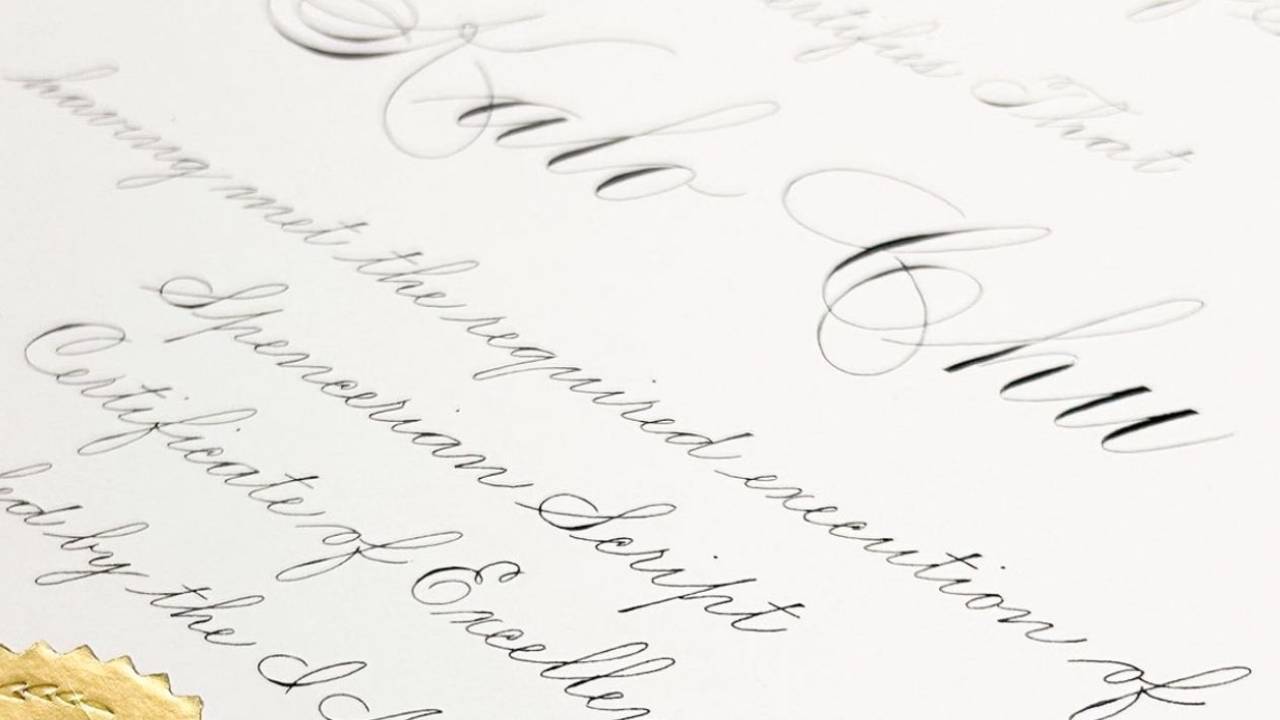 Certifies That
Kalo Chu
having met the required execution of
Spencerian Script
Certificate of
by the